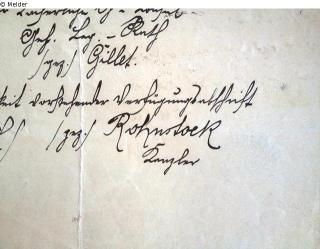 © Melder
Geh. Leg. - Rath
/gez./ Gillet.
vorstehender Verfügungsabschrift
/gez./ Rohnstock
Kanzler